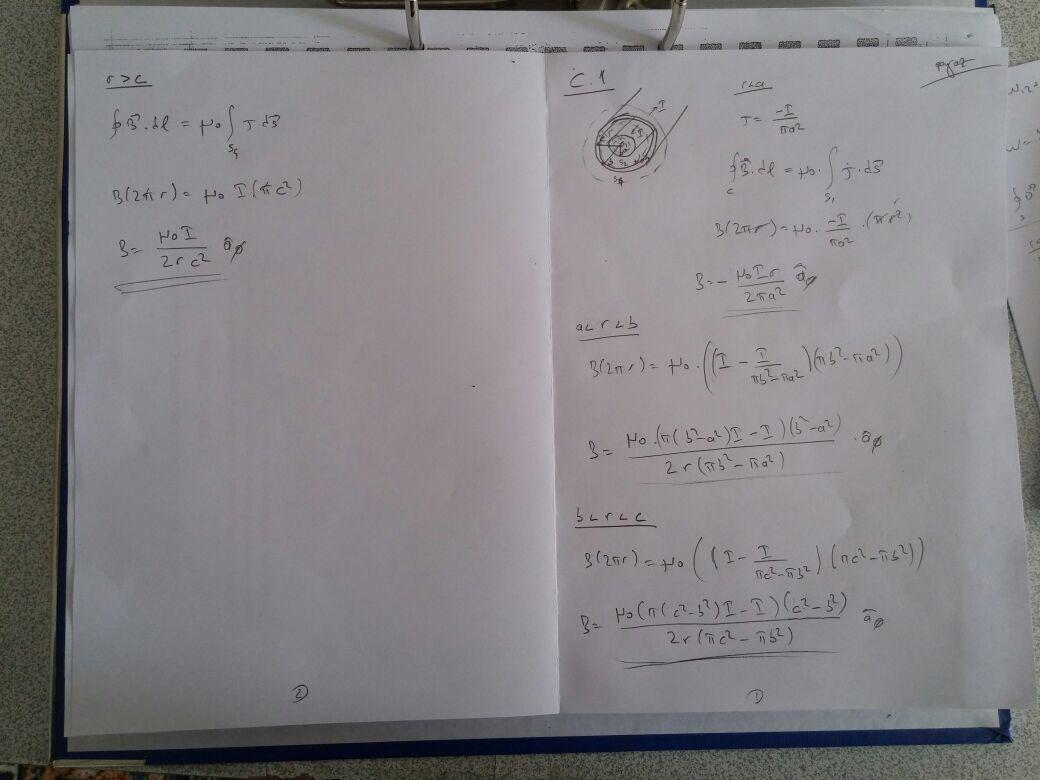 r > c
∮B⃗.dl = μ₀ ∫ J ds⃗
S₄
B(2πr) = μ₀ I(πc²)
B = μ₀I / 2rc² âφ
2
C.1
I
r<a
J = -I / πa²
∮B⃗.dl = μ₀. ∫ J.ds⃗
c S₁
B(2πr) = μ₀. -I / πa² .(πr²)
B = - μ₀Ir / 2πa² âφ
a<r<b
B(2πr) = μ₀.((I - I / πb²-πa²)(πb²-πa²))
B = μ₀.(π(b²-a²)I - I)(b²-a²) / 2r(πb²-πa²) .âφ
b<r<c
B(2πr) = μ₀((I - I / πc²-πb²)(πc²-πb²))
B = μ₀(π(c²-b²)I - I)(c²-b²) / 2r(πc²-πb²) âφ
1